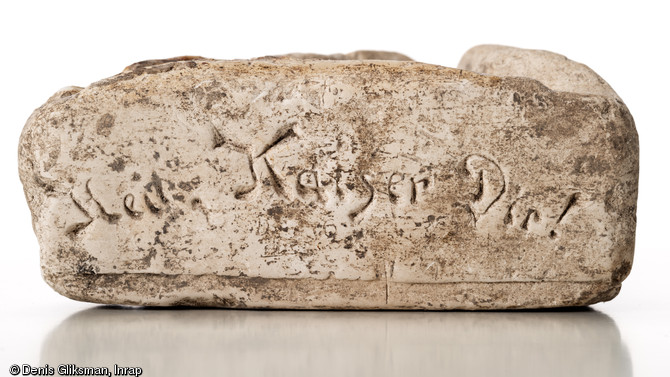 Heil, Kaiser Dir!
© Denis Gliksman, Inrap